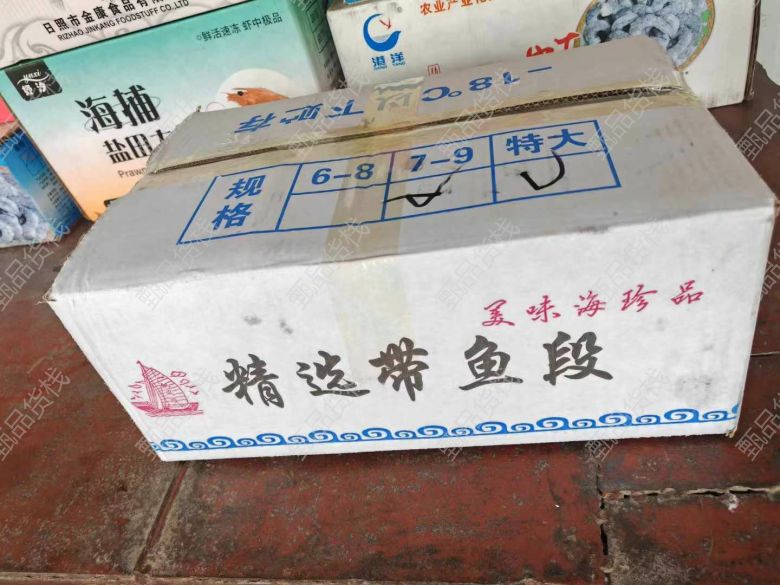 日照市金康食品有限
RIZHAO JINKANG FOODSTUFF CO.,LTD
鲜活速冻 虾中极品
海捕
盐田
Prawn
农业产业化
港洋
-18℃以下贮存
规格 6-8 7-9 特大
美味海珍品
精选带鱼段
甄品货栈